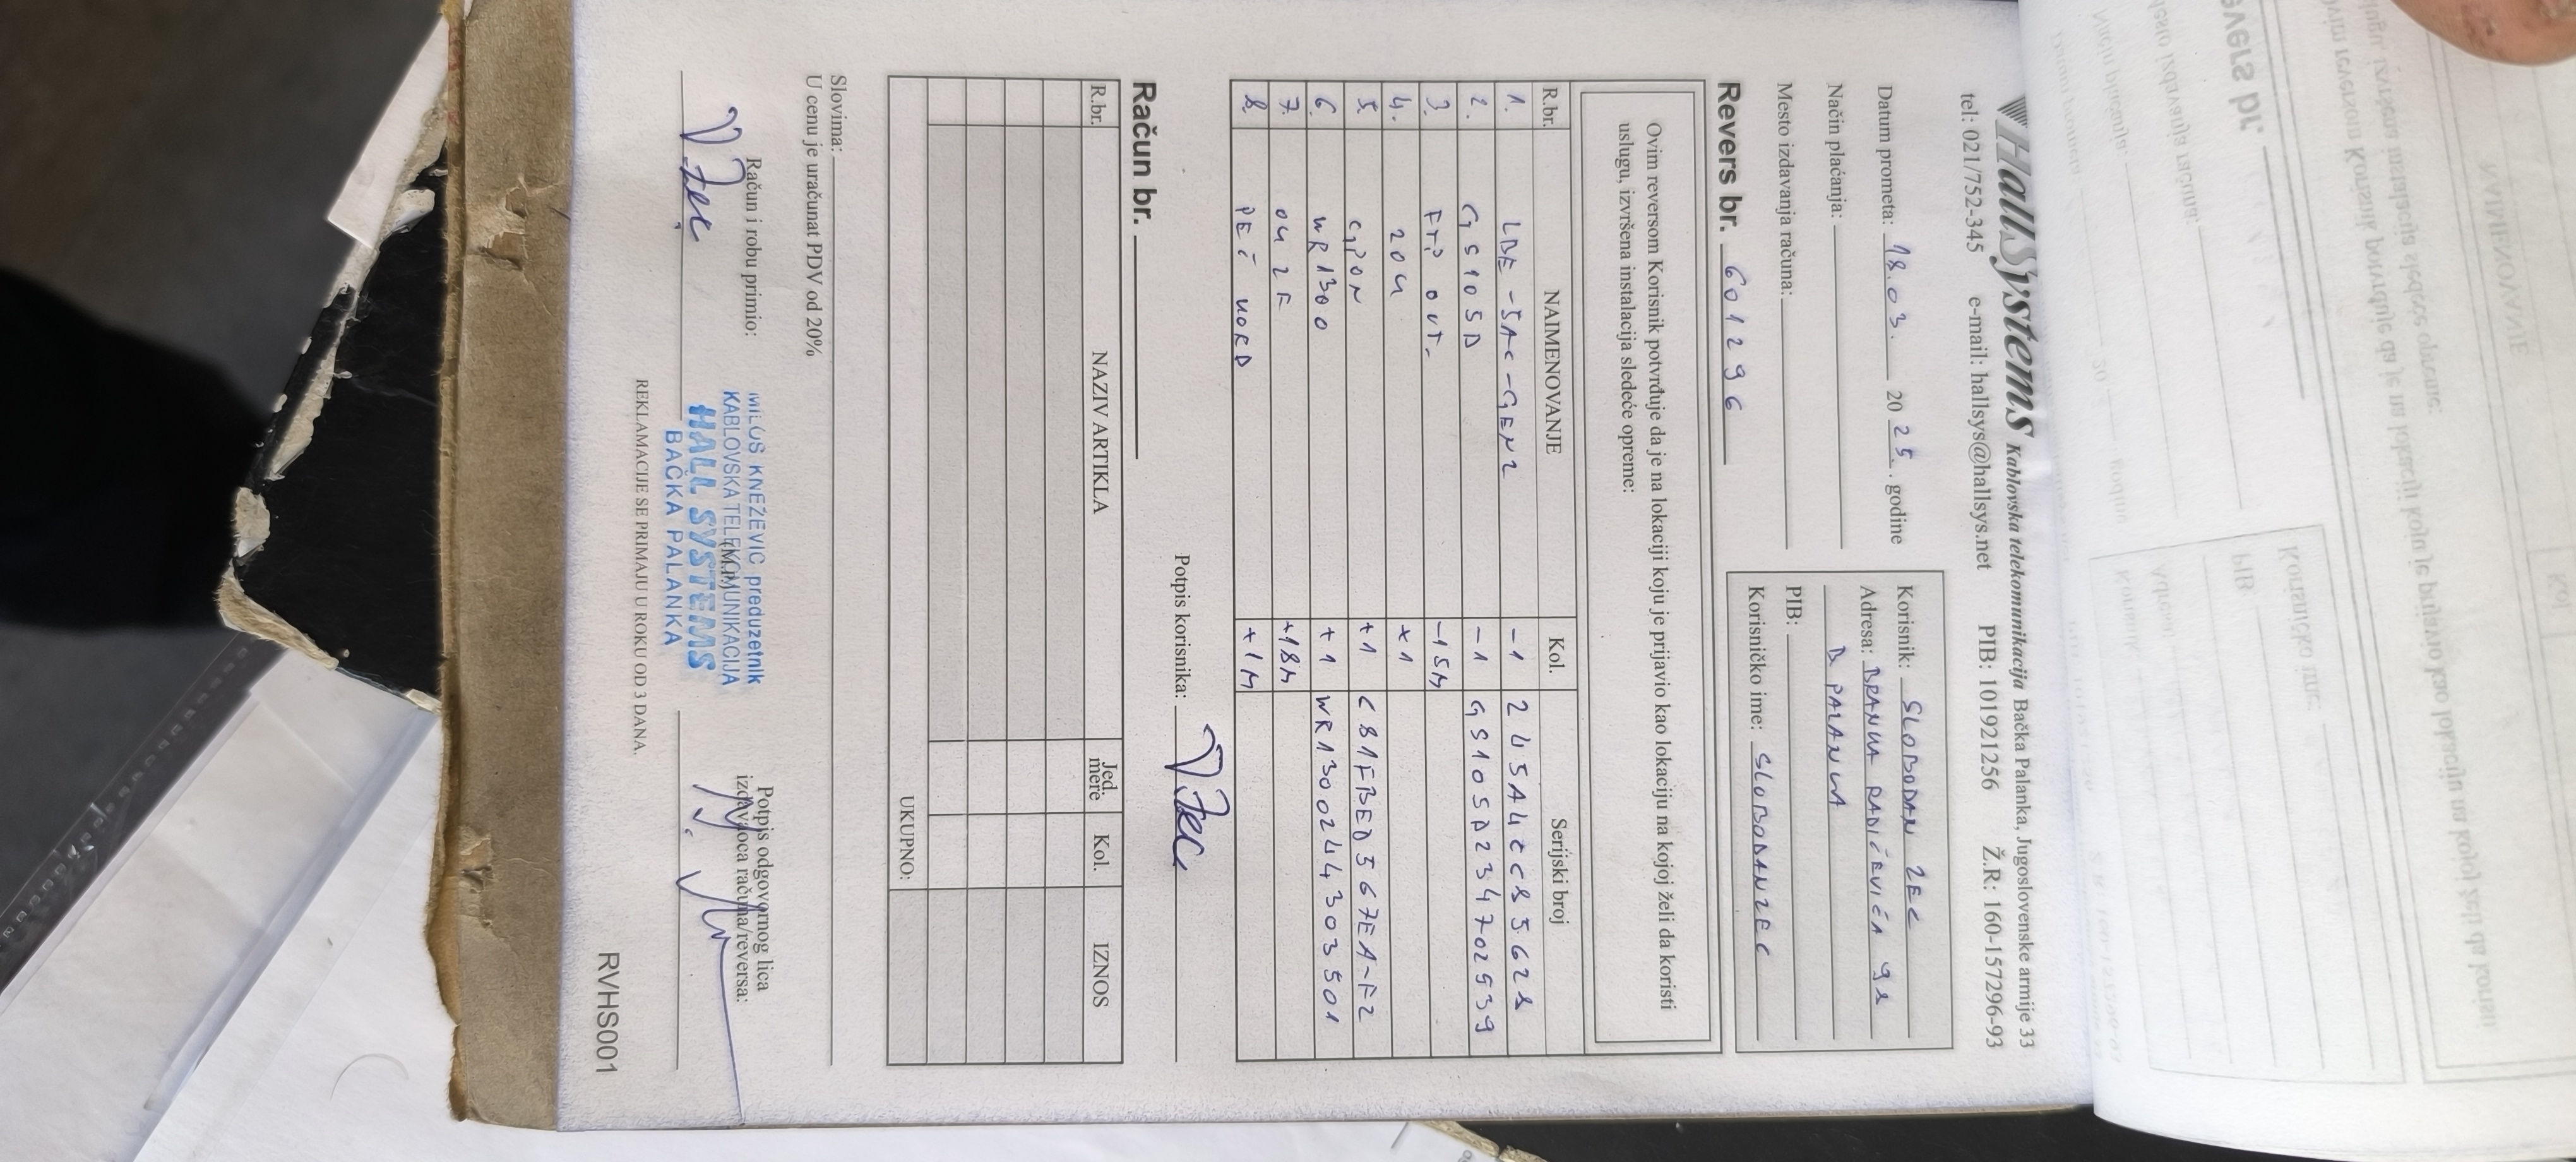 HallSystems Kablovska telekomunikacija Bačka Palanka, Jugoslovenske armije 33
tel: 021/752-345 e-mail: hallsys@hallsys.net PIB: 101921256 Ž.R: 160-157296-93
Datum prometa: 18.03. 2025. godine
Način plaćanja:
Mesto izdavanja računa:
Korisnik: SLOBODAN ZEC
Adresa: BRANKA RADIČEVIĆA 92
B PALANKA
PIB:
Korisničko ime: SLOBODANZEC
Revers br. 601296
Ovim reversom Korisnik potvrđuje da je na lokaciji koju je prijavio kao lokaciju na kojoj želi da koristi
uslugu, izvršena instalacija sledeće opreme:
R.br. NAIMENOVANJE Kol. Serijski broj
1. LBE-5AC-GEN2 -1 245A4CC85628
2. GS105D -1 GS105D234702539
3. FTP OUT. -15M
4. ZOK +1
5. GPON +1 C81FBED567EA-F2
6. WR1300 +1 WR1300244303501
7. OK 2F +18M
8. PEČ KORD +1M
Potpis korisnika:
Račun br.
R.br. NAZIV ARTIKLA Jed. mere Kol. IZNOS
UKUPNO:
Slovima:
U cenu je uračunat PDV od 20%
Račun i robu primio:
MILOŠ KNEŽEVIĆ preduzetnik
KABLOVSKA TELEKOMUNIKACIJA
HALL SYSTEMS
BAČKA PALANKA
(M.P.)
Potpis odgovornog lica
izdavaoca računa/reversa:
REKLAMACIJE SE PRIMAJU U ROKU OD 3 DANA.
RVHS001